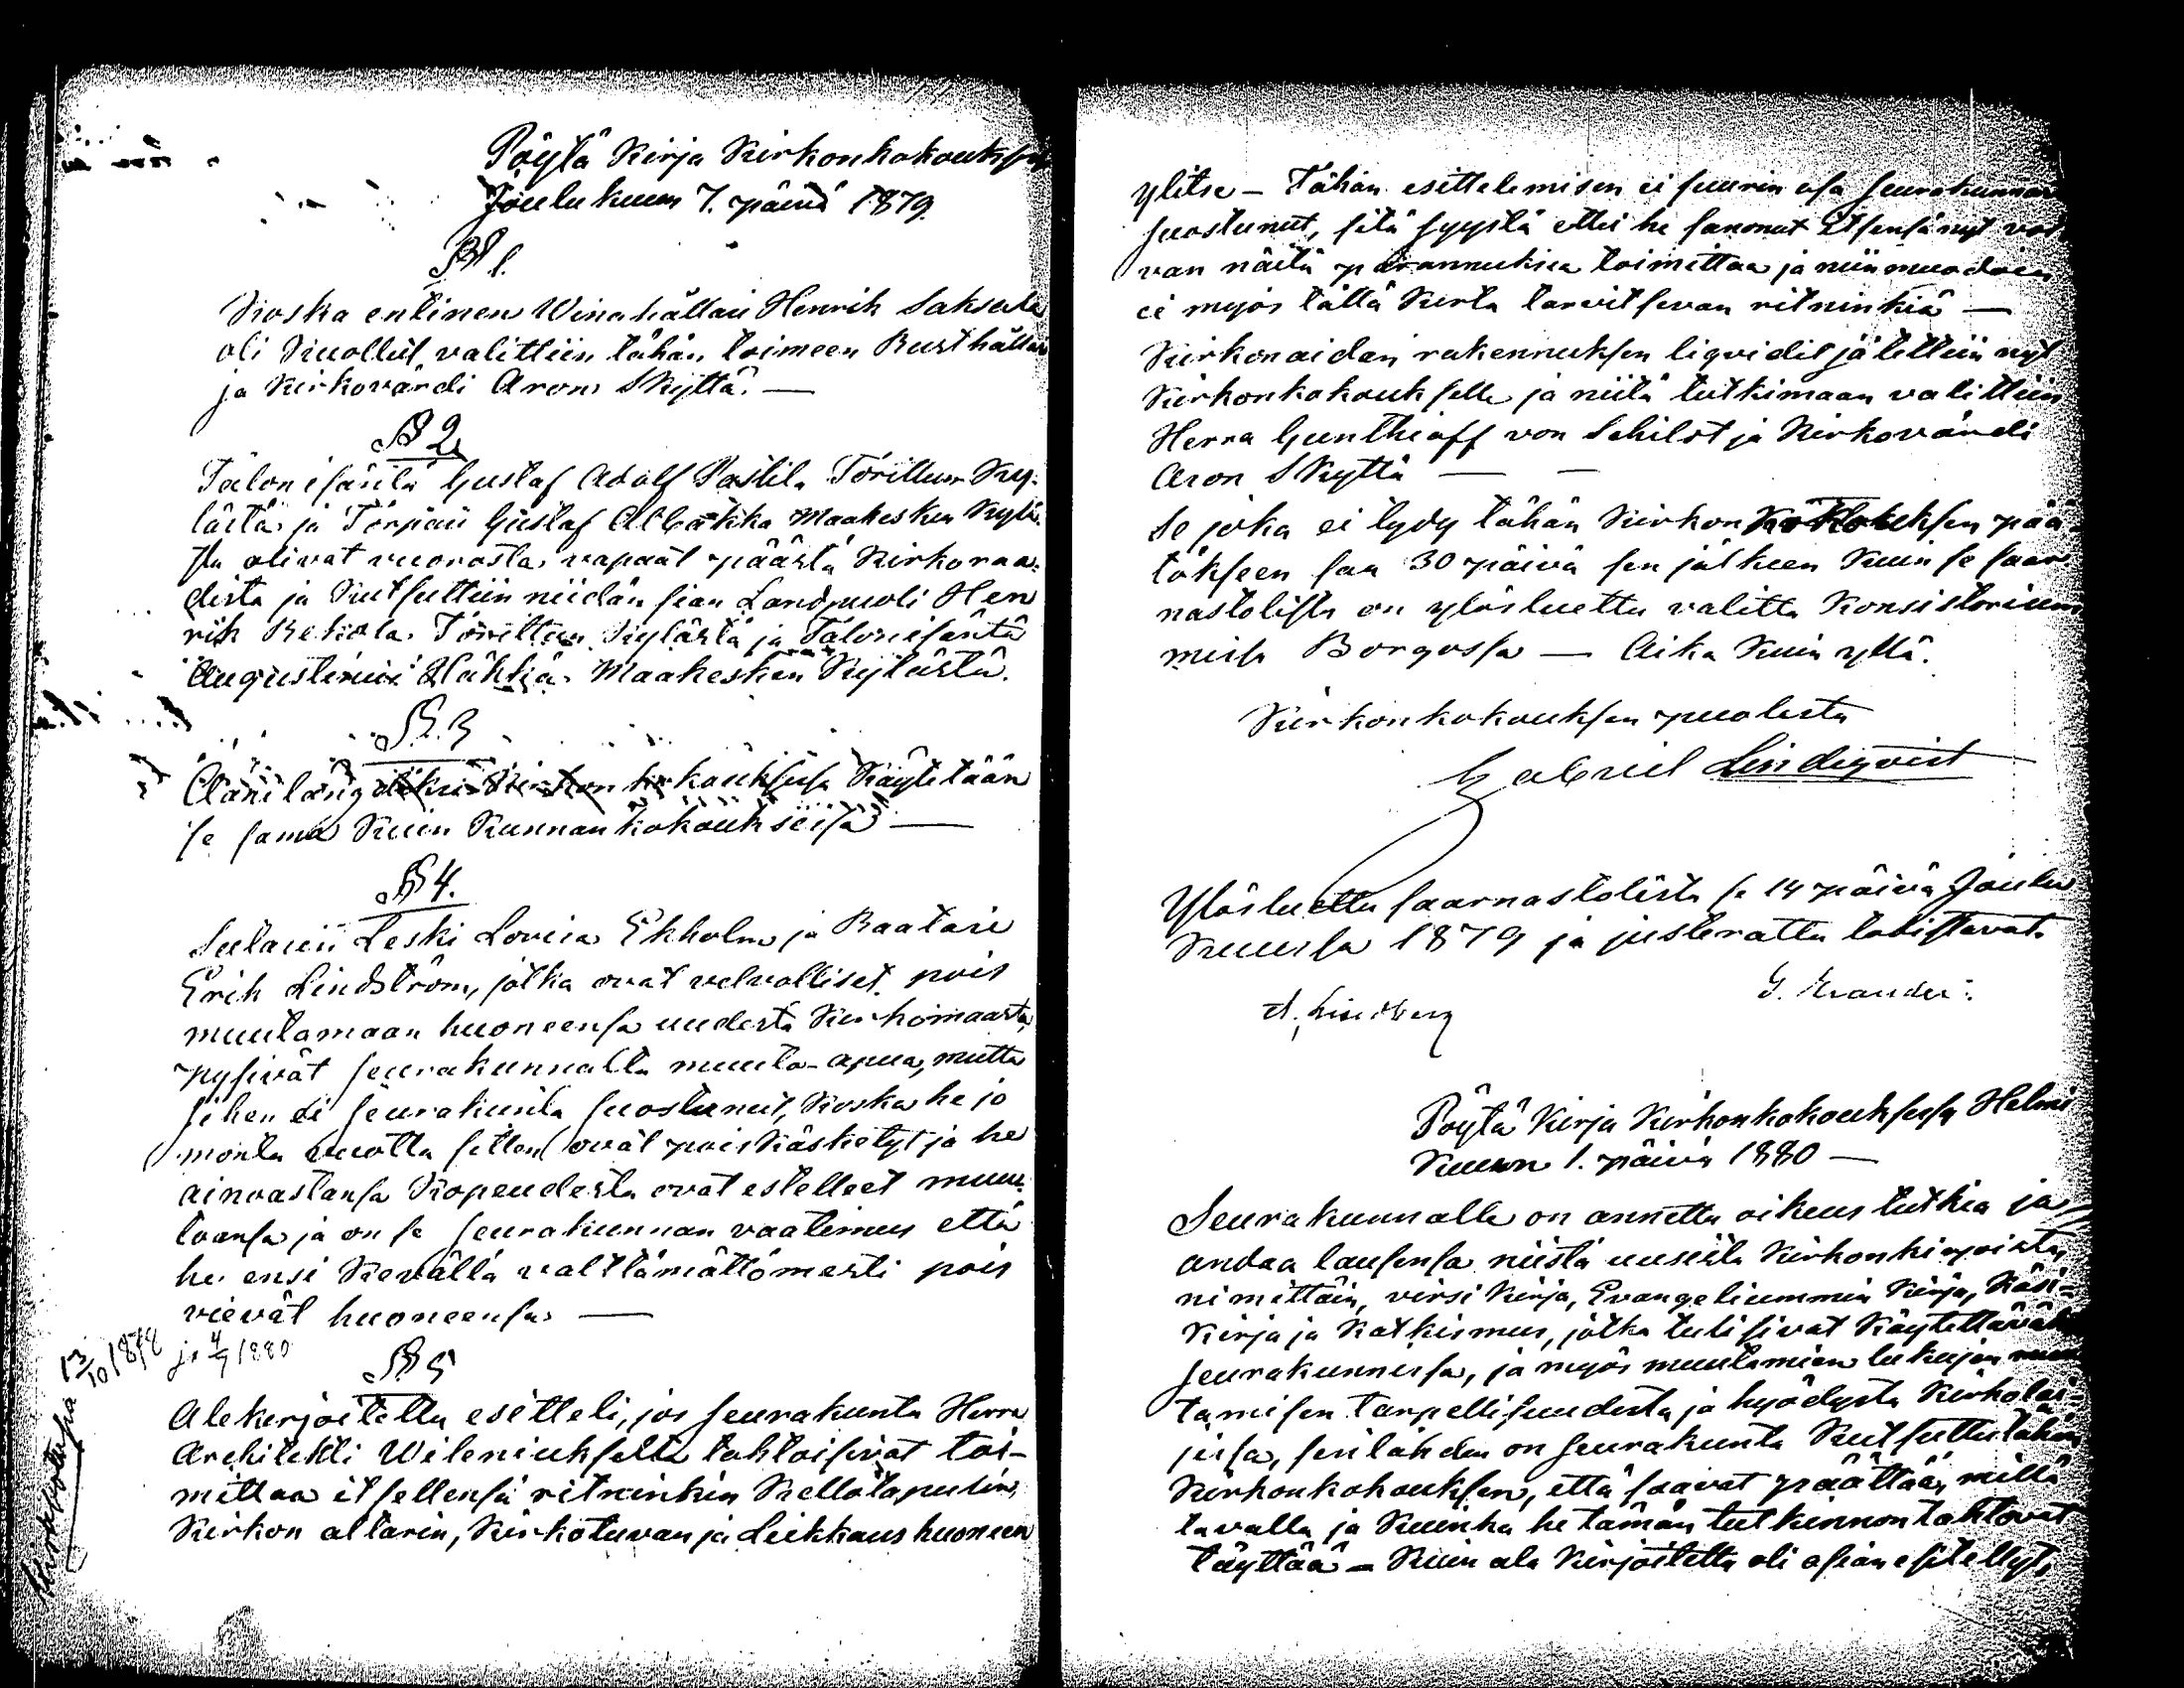 Pöytä Kirja Kirkonkokouksesa
Joulukuun 7. päivä 1879.
§ 1.
Koska entinen Winohältäri Henrik Saksala
oli Kuollut valittiin tähän toimeen Rusthältäri
ja Kirkovärdi Aron Skyttä. —
§ 2
Talon isäntä Gustaf Adolf Pastila Torittun Ky-
lästä ja Torpari Gustaf Maakesken Kyläs-
tä olivat vuorosta vapaat päästä Kirkoraa-
dista ja Kutsuttiin niidän sian Landpuoli Hen
rik Rekola Torittun Kylästä ja Talonisäntä
Augustinus Hähkjä Maakesken Kylästä.
§ 3
Äänilängdiksi Kirkon kokouksisa Käytetään
se sama Kuin Kunnan kokouksisa —
§ 4.
Leski Lovisa Ekholm ja Raatari
Erik Lindström, jotka ovat velvolliset pois
muutamaan huoneensa uudesta Kirkomaasta,
pysivät seurakunnalta muuto-apua, mutta
sihen ei seurakunta suostunut, Koska he jo
monta vuotta sitten ovat pois Käsketyt ja he
ainoastansa Köpeudesta ovat estelleet muu-
toansa ja on se seurakunnan vaatimus että
he ensi Kevällä valttämättömästi pois
vievät huoneensa —
13/10 1878
ja 4/7 1880
§ 5
Kirkkotupa
Alekirjoitettu esitteli, jos seurakunta Herra
Architekti Wileniukselta tahtoisivat toi-
mittaa itsellensä ritninkin Kellotapulin,
Kirkon altarin, Kirkotuvan ja Leikkaus huoneen
ylitse — Tähän esittelemisen ei suurin osa seurakunnan
suostunut, sitä syystä ettei he sanonut itsensä nyt voi-
van näitä parannuksia toimittaa ja niin muodoin
ei myös tällä Kerta tarvitsevan ritninkiä —
Kirkonaidan rakennuksen liqvidit jätettiin nyt
Kirkonkokoukselle ja niitä tutkimaan valittiin
Herra Gunthioff von Schilst ja Kirkovärdi
Aron Skyttä — —
Se joka ei tydy tähän Kirkon Kokokuksen pää-
tökseen saa 30 päivä sen jälkeen Kuin se saar
nastolista on ylösluettu valitta Konsistorium
misa Borgossa — Aika Kuin yllä.
Kirkonkokouksen puolesta
Gabriel Lindqvist
Ylösluettu saarnastolista se 14 päivä Joulu
Kuussa 1879 ja justerattu todistavat.
A. Lindberg
G. Evander.
Pöytä Kirja Kirkonkokouksesa Helmi
Kuun 1. päivä 1880 —
Seurakunnalle on annettu oikeus tutkia ja
andaa lausensa niistä uusista Kirkonkirjoista
nimittäin, virsi Kirja, Evangeliummin Kirja, Käsi-
Kirja ja Katkismus, jotka tulisivat Käytettävät
seurakunnissa, ja myös muutamien lukujen muut
tamisen tarpellisuudesta ja hyödysta Kirkolai-
jisa, sentähden on seurakunta Kutsuttu tähän
Kirkonkokouksen, että saavat päättää, millä
tavalla ja Kuinka he tämän tutkinnon tahtovat
täyttää — Kuin ala Kirjoitettu oli asian esitellyt,